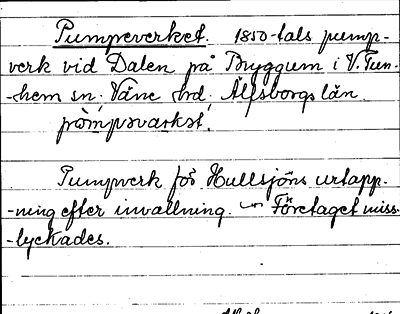 Pumpeverket. 1850-tals pump-
verk vid Dalen på Bryggum i V. Tun-
-hem sn; Väne hd, Älfsborgs län.
pòmpəvarkət.
Pumpverk för Hullsjöns urtapp-
-ning efter invallning. Företaget miss-
-lyckades.